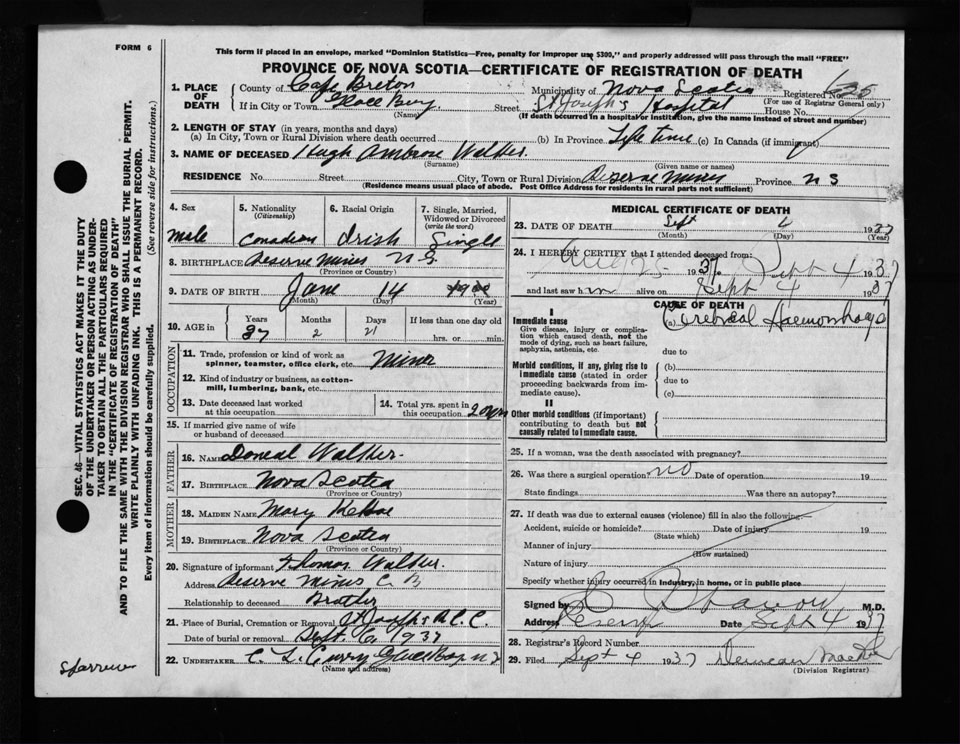 FORM 6
This form if placed in an envelope, marked "Dominion Statistics—Free, penalty for improper use $300," and properly addressed will pass through the mail "FREE"
PROVINCE OF NOVA SCOTIA—CERTIFICATE OF REGISTRATION OF DEATH
1. PLACE OF DEATH County of Cape Breton Municipality of Nova Scotia Registered No. 635
(For use of Registrar General only)
If in City or Town Glace Bay Street St Joseph's Hospital House No.
(Name) (If death occurred in a hospital or institution, give the name instead of street and number)
2. LENGTH OF STAY (in years, months and days)
(a) In City, Town or Rural Division where death occurred (b) In Province Life time (c) In Canada (if immigrant)
3. NAME OF DECEASED Hugh Ambrose Walker.
(Surname) (Given name or names)
RESIDENCE No. Street City, Town or Rural Division Reserve Mines Province N S
(Residence means usual place of abode. Post Office Address for residents in rural parts not sufficient)
4. Sex 5. Nationality (Citizenship) 6. Racial Origin 7. Single, Married, Widowed or Divorced (write the word)
male Canadian Irish Single
8. BIRTHPLACE Reserve Mines N.S.
(Province or Country)
9. DATE OF BIRTH June 14
(Month) (Day) (Year)
10. AGE in Years Months Days If less than one day old
37 2 21 hrs. or min.
OCCUPATION
11. Trade, profession or kind of work as spinner, teamster, office clerk, etc. Miner
12. Kind of industry or business, as cotton-mill, lumbering, bank, etc.
13. Date deceased last worked at this occupation
14. Total yrs. spent in this occupation 20 yrs
15. If married give name of wife or husband of deceased
FATHER
16. NAME Walker.
17. BIRTHPLACE Nova Scotia
(Province or Country)
MOTHER
18. MAIDEN NAME Mary Kehoe
19. BIRTHPLACE Nova Scotia
(Province or Country)
20. Signature of informant Thomas Walker.
Address Reserve Mines C B
Relationship to deceased Brother
21. Place of Burial, Cremation or Removal St Joseph's R.C.C.
Date of burial or removal Sept 6 1937
22. UNDERTAKER C. L. Curry Glace Bay N S
(Name and address)
MEDICAL CERTIFICATE OF DEATH
23. DATE OF DEATH Sept 1937
(Month) (Day) (Year)
24. I HEREBY CERTIFY that I attended deceased from:
Aug 25 1937 to Sept 4 1937
and last saw him alive on Sept 4 1937
CAUSE OF DEATH
I
Immediate cause (a) Cerebral Haemorrhage
Give disease, injury or complication which caused death, not the mode of dying, such as heart failure, asphyxia, asthenia, etc.
due to
Morbid conditions, if any, giving rise to immediate cause (stated in order proceeding backwards from immediate cause).
(b)
due to
(c)
II
Other morbid conditions (if important) contributing to death but not causally related to immediate cause.
25. If a woman, was the death associated with pregnancy?
26. Was there a surgical operation? no Date of operation 19
State findings Was there an autopsy?
27. If death was due to external causes (violence) fill in also the following—
Accident, suicide or homicide? Date of injury 19
(State which)
Manner of injury
(How sustained)
Nature of injury
Specify whether injury occurred in industry, in home, or in public place
Signed by M.D.
Address Reserve Date Sept 4 1937
28. Registrar's Record Number
29. Filed Sept 4 1937 Duncan
(Division Registrar)
SEC. 46—VITAL STATISTICS ACT MAKES IT THE DUTY
OF THE UNDERTAKER OR PERSON ACTING AS UNDER-
TAKER TO OBTAIN ALL THE PARTICULARS REQUIRED
IN THE "CERTIFICATE OF REGISTRATION OF DEATH"
AND TO FILE THE SAME WITH THE DIVISION REGISTRAR WHO SHALL ISSUE THE BURIAL PERMIT.
WRITE PLAINLY WITH UNFADING INK. THIS IS A PERMANENT RECORD.
Every item of information should be carefully supplied. (See reverse side for instructions.)
Sparrow